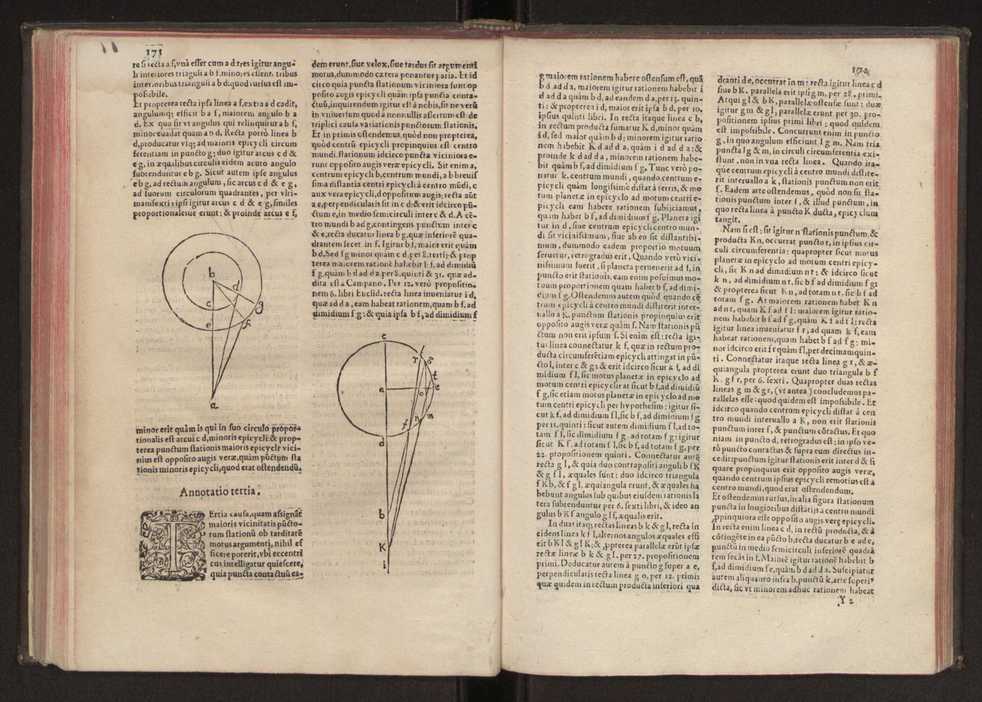 171
re si recta a f, vnà esset cum a d: tres igitur angu
li interiores trianguli a b f, minores essent tribus
interioribus trianguli a b d: quod rursus est im-
possibile.
Et propterea recta ipsa linea a f, extra a d cadit,
angulumq; efficit b a f, maiorem angulo b a
d. Ex quo fit vt angulus qui relinquitur a b f,
minor euadat quam a b d. Recta porrò linea b
d, producatur vsq; ad maioris epicycli circum
ferentiam in puncto g: duo igitur arcus c d &
e g, in æqualibus circulis eidem acuto angulo
subtenduntur e b g. Sicut autem ipse angulus
e b g, ad rectum angulum, sic arcus c d & e g,
ad suorum circulorum quadrantes, per vlti-
mam sexti: ipsi igitur arcus c d & e g, similes
proportionalesue erunt: & proinde arcus e f,
b
c
d
e
f
g
a
minor erit quàm is qui in suo circulo propor-
tionalis est arcui c d, minoris epicycli: & prop-
terea punctum stationis maioris epicycli vici-
nius est opposito augis veræ, quàm pũctum sta
tionis minoris epicycli, quod erat ostendendũ.
Annotatio tertia.
TErtia causa, quam assignãt
maioris vicinitatis pũcto-
rum stationũ ob tarditatẽ
motus argumenti, nihil ef
ficere poterit, vbi eccentri
cus intelligatur quiescere,
quia puncta contactuũ ea-
dem erunt, siue velox, siue tardus sit argumenti
motus, dummodo cætera ponantur paria. Et id
circo quia puncta stationum viciniora sunt op
posito augis epicycli quàm ipsa puncta conta-
ctuũ, inquirendum igitur est à nobis, sit ne verũ
in vniuersum quod à nonnullis assertum est de
triplici causa variationis punctorum stationis.
Et in primis ostendemus, quòd non propterea,
quòd centrũ epicycli propinquius est centro
mundi, stationum idcirco puncta viciniora e-
runt opposito augis veræ epicycli. Sit enim a,
centrum epicycli, b, centrum mundi, a b breuis
sima distantia centri epicycli à centro mũdi, c
aux vera epicycli, d oppositum augis: recta aũt
a e, perpendicularis sit in c d: & erit idcirco pũ-
ctum e, in medio semicirculi inter c & d. A cẽ-
tro mundi b ad g, contingens punctum inter c
& e, recta ducatur linea b g, quæ inferiorẽ qua-
drantem secet in f. Igitur b f, maior erit quàm
b d. Sed f g minor quàm c d per 8. tertij: & prop
terea maiorem rationẽ habebit b f, ad dimidiũ
f g, quàm b d ad d a per 8. quinti & 31. quæ ad-
dita est à Campano. Per 12. verò propositio-
nem 6. libri Euclid. recta linea inueniatur i d,
quæ ad d a, eam habeat rationem, quam b f, ad
dimidium f g: & quia ipsa b f, ad dimidium f
c
a
e
d
b
K
i
172
g maiorem rationem habere ostensum est, quã
b d ad d a, maiorem igitur rationem habebit i
d ad d a quàm b d, ad eandem d a, per 13. quin-
ti: & propterea i d, maior erit ipsa b d, per 10.
ipsius quinti libri. In recta itaque linea c b,
in rectum producta sumatur K d, minor quàm
i d, sed maior quàm b d: minorem igitur ratio
nem habebit K d ad d a, quàm i d ad d a: &
proinde k d ad d a, minorem rationem habe-
bit quàm b f, ad dimidium f g. Tunc verò po-
natur k, centrum mundi, quando centrum e-
picycli quàm longissimè distat à terris, & mo
tum planetæ in epicyclo ad motum centri e-
picycli eam habere rationem subijciamus,
quam habet b f, ad dimidium f g. Planeta igi
tur in d, siue centrum epicycli centro mun-
di sit vicinissimum, siue ab eo sit distantissi-
mum, dummodo eadem proportio motuum
seruetur, retrogradus erit. Quando verò vici-
nissimum fuerit, si planeta peruenerit ad f, in
puncto erit stationis, eam enim posuimus mo-
tuum proportionem quam habet b f, ad dimi-
dium f g. Ostendemus autem quòd quando cẽ
trum epicycli à centro mundi distiterit inter-
uallo a K, punctum stationis propinquius erit
opposito augis veræ quàm f. Nam stationis pũ
ctum non erit ipsum f. Si enim est: recta igi-
tur linea connectatur k f, quæ in rectum pro-
ducta circunferẽtiam epicycli attingat in pũ-
cto l, inter c & g: & erit idcirco sicut k f, ad di
midium f l, sic motus planetæ in epicyclo ad
motum centri epicycli: at sicut b f, ad dimidiũ
f g, sic etiam motus planetæ in epicyclo ad mo
tum centri epicycli per hypothesim: igitur si-
cut k f, ad dimidium f l, sic b f, ad dimidium f g
per 11. quinti: sicut autem dimidium f l, ad to-
tam f l, sic dimidium f g ad totam f g: igitur
sicut K f ad totam f l, sic b f, ad totam f g, per
22. propositionem quinti. Connectatur autẽ
recta g l, & quia duo contrapositi anguli b f K
& g f l, æquales sunt: duo idcirco triangula
f K b, & f g l, æquiangula erunt, & æquales ha
bebunt angulos sub quibus eiusdem rationis la
tera subtenduntur per 6. sexti libri, & ideo an
gulus b K f angulo g l f, æqualis erit.
In duas itaq; rectas lineas b k & g l, recta in
cidens linea k f l, alternos angulos æquales effi
cit b K l & g l K: & propterea parallelæ erũt ipsæ
rectæ lineæ b k & g l, per 27. propositionem
primi. Deducatur autem à puncto g super a e,
perpendicularis recta linea g o, per 12. primi:
quæ quidem in rectum producta inferiori qua
dranti d e, occurrat in m: recta igitur linea c d
siue b K, parallela erit ipsi g m, per 28. primi.
Atqui g l & b K, parallelæ ostensæ sunt: duæ
igitur g m & g l, parallelæ erunt per 30. pro-
positionem ipsius primi libri: quod quidem
est impossibile. Concurrunt enim in puncto
g, in quo angulum efficiunt l g m. Nam tria
puncta l g & m, in circuli circunferentia exi-
stunt, non in vna recta linea. Quando ita-
que centrum epicycli à centro mundi distite-
rit interuallo a k, stationis punctum non erit
f. Eadem arte ostendemus, quòd non sit sta-
tionis punctum inter f, & illud punctum, in
quo recta linea à puncto K ducta, epicyclum
tangit.
Nam si est: sit igitur n stationis punctum, &
producta Kn, occurrat puncto t, in ipsius cir-
culi circumferentia: quapropter sicut motus
planetæ in epicyclo ad motum centri epicy-
cli, sic K n ad dimidium n t: & idcirco sicut
k n, ad dimidium n t, sic b f ad dimidium f g:
& propterea sicut K n, ad totam n t, sic b f ad
totam f g. At maiorem rationem habet K n
ad n t, quàm K f ad f l: maiorem igitur ratio-
nem habebit b f ad f g, quàm K f ad f l: recta
igitur linea inueniatur f r, ad quam k f, eam
habeat rationem, quam habet b f ad f g: mi-
nor idcirco erit f r quàm f l, per decimam quin-
ti. Connectatur itaque recta linea g r, & æ-
quiangula propterea erunt duo triangula b f
K, g f r, per 6. sexti. Quapropter duas rectas
lineas g m & g r, (vt antea) concludemus pa-
rallelas esse: quod quidem est impossibile. Et
idcirco quando centrum epicycli distat à cen
tro mundi interuallo a K, non erit stationis
punctum inter f, & punctum cõtactus. Et quo
niam in puncto d, retrogradus est: in ipso ve-
rò puncto contractus & supra eum directus in-
cedit: punctum igitur stationis erit inter d & f:
quare propinquius erit opposito augis veræ,
quando centrum ipsius epicycli remotius est à
centro mundi, quod erat ostendendum.
Et ostendemus rursus, in alia figura stationum
puncta in longioribus distãtijs à centro mundi
propinquiora esse opposito augis veræ epicycli.
In recta enim linea c d, in rectũ producta, & à
cõtingẽte in ea pũcto b, recta ducatur b e ad e,
punctũ in medio semicirculi inferiorẽ quadrã
tem secãs in f. Maiorẽ igitur rationẽ habebit b
f, ad dimidium f e, quàm b d ad d a. Suscipiatur
autem aliquanto infra b, punctũ k, arte superi°
dicta, sic vt minorem adhuc rationem habeat
Y 2